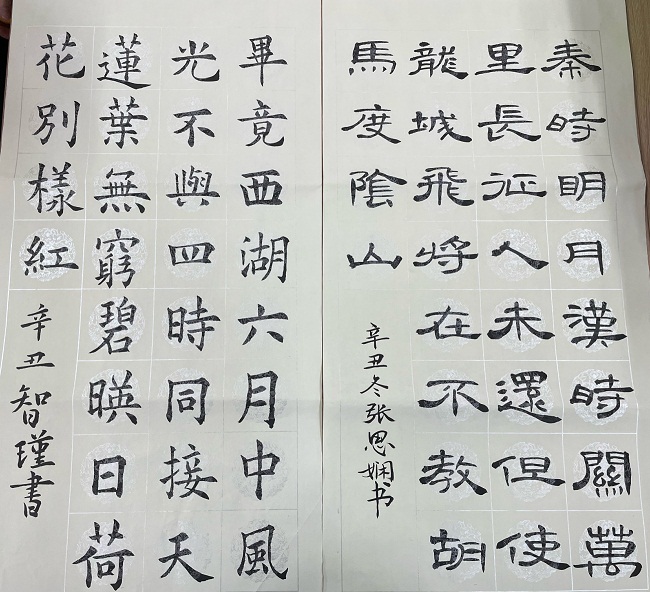 秦時明月漢時關萬
里長征人未還但使
龍城飛將在不教胡
馬度陰山
辛丑冬张思娴书
畢竟西湖六月中風
光不與四時同接天
蓮葉無窮碧暎日荷
花別樣紅
辛丑智瑾書